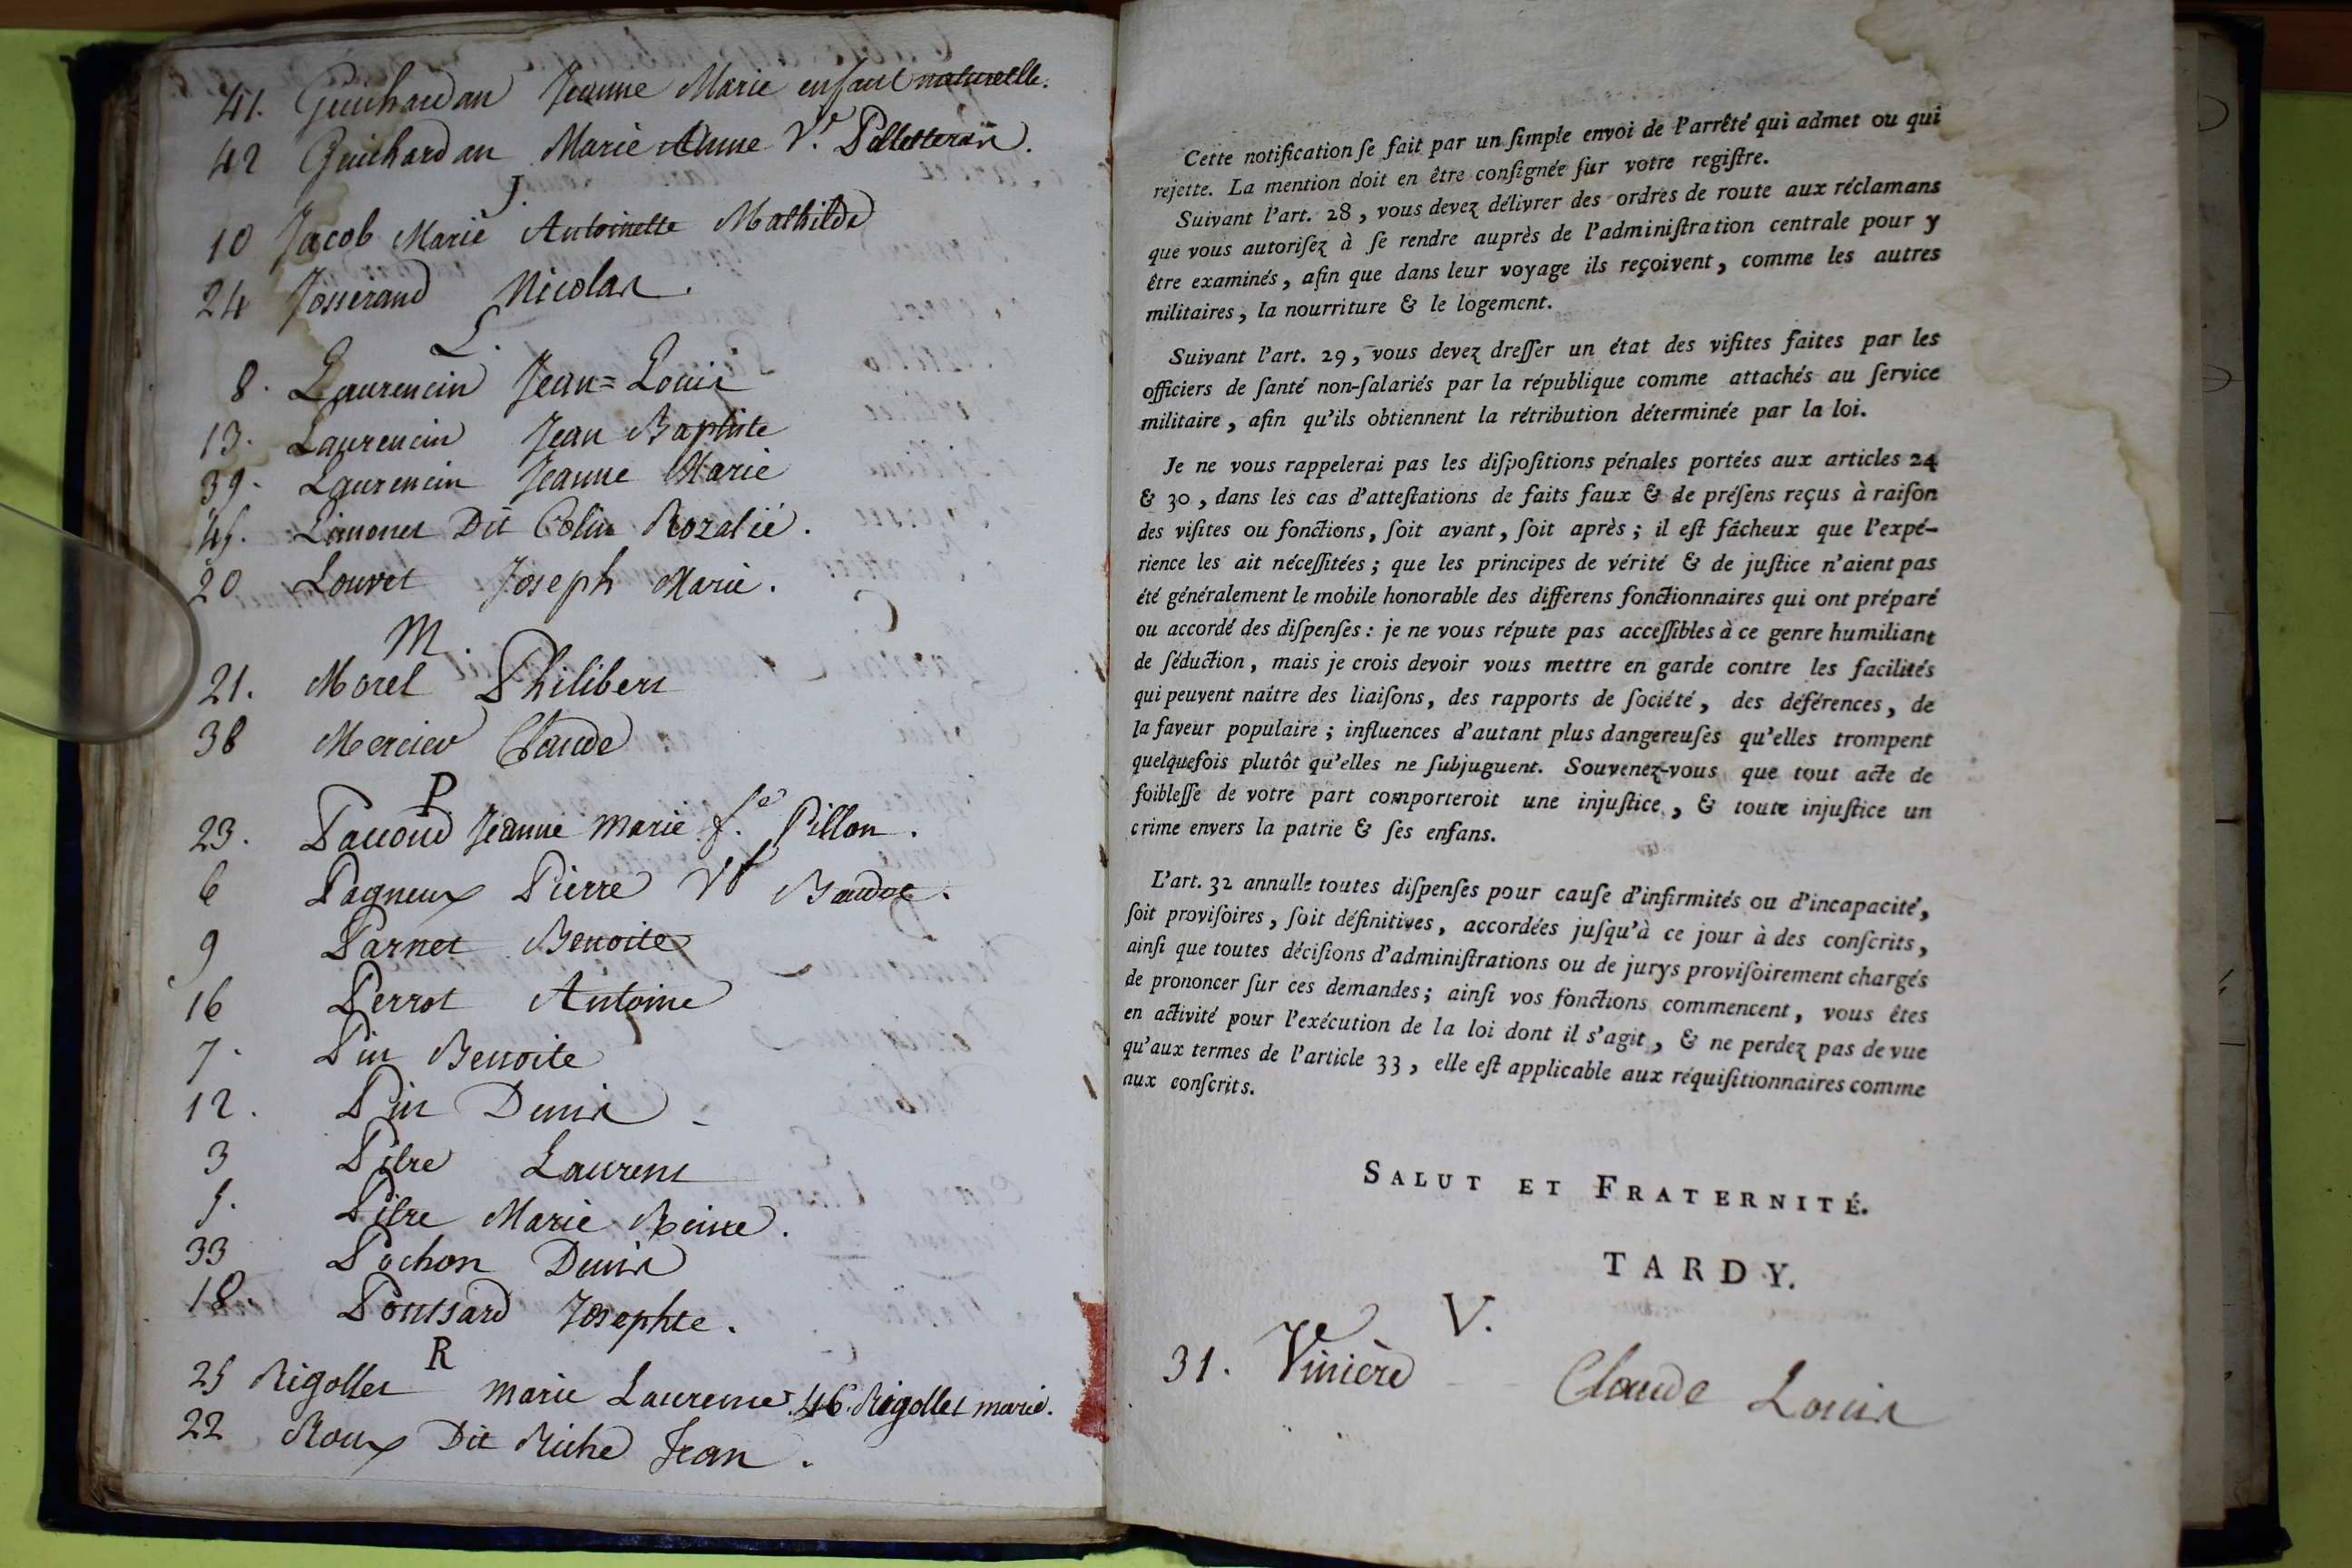 41. Guichardan Jeanne Marie enfant naturelle.
42 Guichardan Marie Anne Ve. Pelletteran.
J.
10 Jacob Marie Antoinette Mathilde
24 Josserand Nicolas.
L.
8. Laurencin Jean=Louis
13. Laurencin Jean Baptiste
39. Laurencin Jeanne Marie
45. Limonet Dit Colin Rozalie.
20 Louvet Joseph Marie.
M.
21. Morel Philibert
38 Mercier Claude
P
23. Pauoud Jeanne Marie fe. Pillon.
6 Pagneux Pierre Vf Baudot.
9 Parnet Benoite
16 Perrot Antoine
7. Pin Benoite
12. Pin Denis
3 Pitre Laurent
5. Pitre Marie Reine.
33 Pochon Denis
18. Poussard Josephte.
R
25 Rigollet Marie Laurence. 46. Rigollet marie.
22 Roux Dit Riche Jean.
Cette notification ſe fait par un ſimple envoi de l'arrêté qui admet ou qui
rejette. La mention doit en être conſignée ſur votre regiſtre.
Suivant l'art. 28, vous devez délivrer des ordres de route aux réclamans
que vous autoriſez à ſe rendre auprès de l'adminiſtration centrale pour y
être examinés, afin que dans leur voyage ils reçoivent, comme les autres
militaires, la nourriture & le logement.
Suivant l'art. 29, vous devez dreſſer un état des viſites faites par les
officiers de ſanté non-ſalariés par la république comme attachés au ſervice
militaire, afin qu'ils obtiennent la rétribution déterminée par la loi.
Je ne vous rappelerai pas les diſpoſitions pénales portées aux articles 24
& 30, dans les cas d'atteſtations de faits faux & de préſens reçus à raiſon
des viſites ou fonctions, ſoit avant, ſoit après; il eſt fâcheux que l'expé-
rience les ait néceſſitées; que les principes de vérité & de juſtice n'aient pas
été généralement le mobile honorable des differens fonctionnaires qui ont préparé
ou accordé des diſpenſes: je ne vous répute pas acceſſibles à ce genre humiliant
de ſéduction, mais je crois devoir vous mettre en garde contre les facilités
qui peuvent naître des liaiſons, des rapports de ſociété, des déférences, de
la faveur populaire; influences d'autant plus dangereuſes qu'elles trompent
quelquefois plutôt qu'elles ne ſubjuguent. Souvenez-vous que tout acte de
foibleſſe de votre part comporteroit une injuſtice, & toute injuſtice un
crime envers la patrie & ſes enfans.
L'art. 32 annulle toutes diſpenſes pour cauſe d'infirmités ou d'incapacité,
ſoit proviſoires, ſoit définitives, accordées juſqu'à ce jour à des conſcrits,
ainſi que toutes déciſions d'adminiſtrations ou de jurys proviſoirement chargés
de prononcer ſur ces demandes; ainſi vos fonctions commencent, vous êtes
en activité pour l'exécution de la loi dont il s'agit, & ne perdez pas de vue
qu'aux termes de l'article 33, elle eſt applicable aux réquiſitionnaires comme
aux conſcrits.
SALUT ET FRATERNITÉ.
TARDY.
V.
31. Vinière Claude Louis